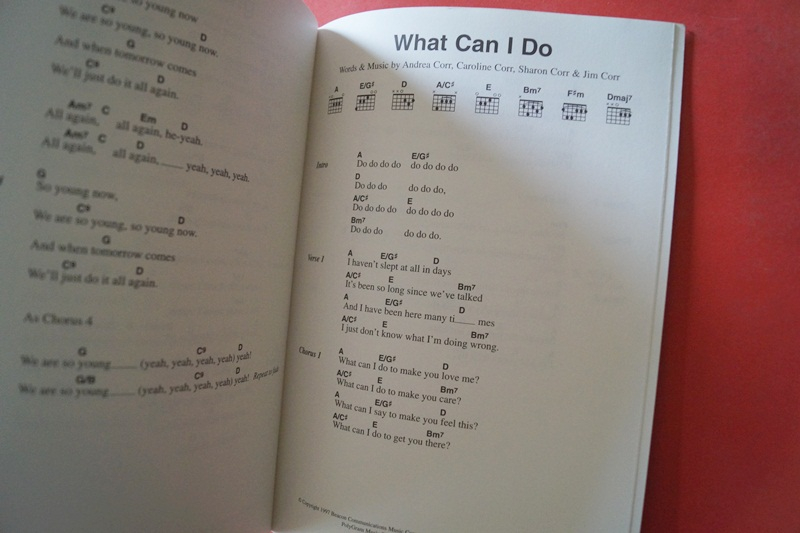 so young now
C9 D
We are so young, so young now.
G
And when tomorrow comes
C9 D
We'll just do it all again.
Am7 C Em D
All again, all again, he-yeah.
Am7 C D
All again, all again, yeah, yeah, yeah.
G
So young now,
C9 D
We are so young, so young now.
G
And when tomorrow comes
C9 D
We'll just do it all again.
As Chorus 4
G C9 D
We are so young (yeah, yeah, yeah, yeah) yeah!
G/B C9 D
We are so young (yeah, yeah, yeah, yeah) yeah! Repeat to fade
What Can I Do
Words & Music by Andrea Corr, Caroline Corr, Sharon Corr & Jim Corr
A E/G♯ D A/C♯ E Bm7 F♯m Dmaj7
A E/G♯
Intro Do do do do do do do do
D
Do do do do do do,
A/C♯ E
Do do do do do do do do
Bm7
Do do do do do do.
A E/G♯ D
Verse 1 I haven't slept at all in days
A/C♯ E Bm7
It's been so long since we've talked
A E/G♯ D
And I have been here many ti mes
A/C♯ E Bm7
I just don't know what I'm doing wrong.
A E/G♯ D
Chorus 1 What can I do to make you love me?
A/C♯ E Bm7
What can I do to make you care?
A E/G♯ D
What can I say to make you feel this?
A/C♯ E Bm7
What can I do to get you there?
© Copyright 1997 Beacon Communications Music
PolyGram